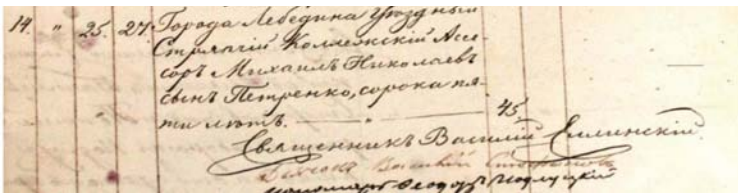 14. " 25. 27. Города Лебедина Уѣздный
Стряпчій Коллежскій Асе-
соръ Михаилъ Николаевъ
сынъ Петренко, сорока пя-
ти лѣтъ. — " — 45.
Священникъ Василій Еллинскій.
Дьячокъ Василій
Пономарь Ѳеодоръ